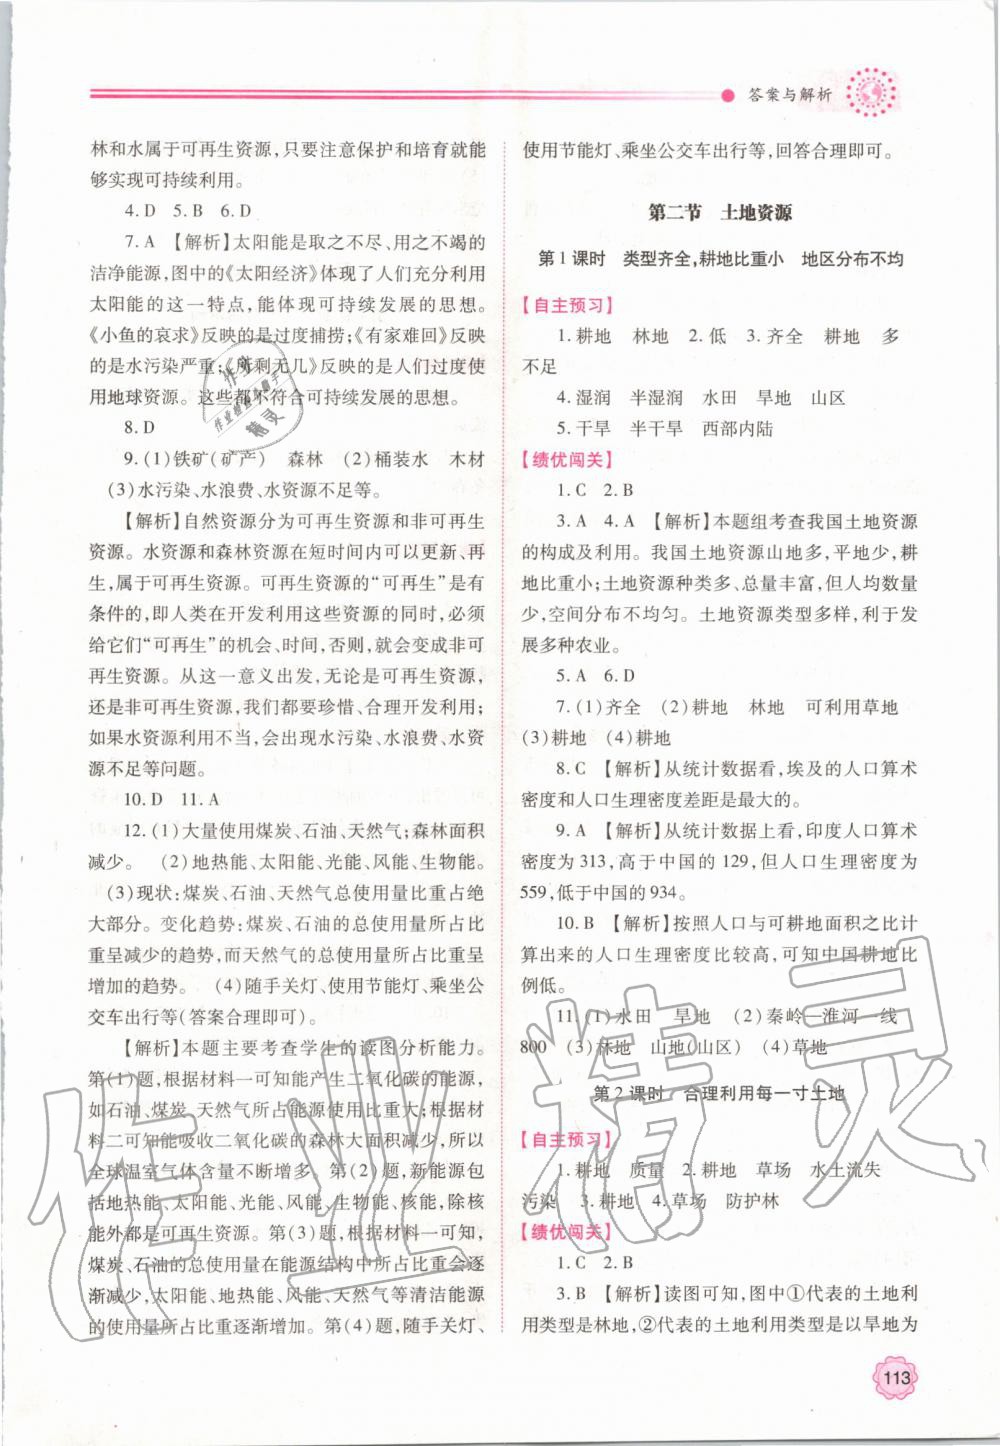 答案与解析
林和水属于可再生资源,只要注意保护和培育就能
够实现可持续利用。
4. D 5. B 6. D
7. A 【解析】太阳能是取之不尽、用之不竭的
洁净能源,图中的《太阳经济》体现了人们充分利用
太阳能的这一特点,能体现可持续发展的思想。
《小鱼的哀求》反映的是过度捕捞;《有家难回》反映
的是水污染严重;《所剩无几》反映的是人们过度使
用地球资源。这些都不符合可持续发展的思想。
8. D
9. (1)铁矿(矿产) 森林 (2)桶装水 木材
(3)水污染、水浪费、水资源不足等。
【解析】自然资源分为可再生资源和非可再生
资源。水资源和森林资源在短时间内可以更新、再
生,属于可再生资源。可再生资源的“可再生”是有
条件的,即人类在开发利用这些资源的同时,必须
给它们“可再生”的机会、时间,否则,就会变成非可
再生资源。从这一意义出发,无论是可再生资源,
还是非可再生资源,我们都要珍惜、合理开发利用;
如果水资源利用不当,会出现水污染、水浪费、水资
源不足等问题。
10. D 11. A
12. (1)大量使用煤炭、石油、天然气;森林面积
减少。 (2)地热能、太阳能、光能、风能、生物能。
(3)现状:煤炭、石油、天然气总使用量比重占绝
大部分。变化趋势:煤炭、石油的总使用量所占比
重呈减少的趋势,而天然气的总使用量所占比重呈
增加的趋势。 (4)随手关灯、使用节能灯、乘坐公
交车出行等(答案合理即可)。
【解析】本题主要考查学生的读图分析能力。
第(1)题,根据材料一可知能产生二氧化碳的能源,
如石油、煤炭、天然气所占能源比重大,根据材
料二可知能吸收二氧化碳的森林大面积减少,所以
全球温室气体含量不断增多。第(2)题,新能源包
括地热能、太阳能、光能、风能、生物能、核能,除核
能外都是可再生资源。第(3)题,根据材料一可知,
煤炭、石油的总使用量在能源结构中所占比重会逐
渐减少,太阳能、地热能、风能、天然气等清洁能源
的使用量所占比重逐渐增加。第(4)题,随手关灯、
使用节能灯、乘坐公交车出行等,回答合理即可。
第二节 土地资源
第1课时 类型齐全,耕地比重小 地区分布不均
【自主预习】
1. 耕地 林地 2. 低 3. 齐全 耕地 多
不足
4. 湿润 半湿润 水田 旱地 山区
5. 干旱 半干旱 西部内陆
【绩优闯关】
1. C 2. B
3. A 4. A 【解析】本题组考查我国土地资源
的构成及利用。我国土地资源山地多,平地少,耕
地比重小;土地资源种类多、总量丰富,但人均数量
少,空间分布不均匀。土地资源类型多样,利于发
展多种农业。
5. A 6. D
7. (1)齐全 (2)耕地 林地 可利用草地
(3)耕地 (4)耕地
8. C 【解析】从统计数据看,埃及的人口算术
密度和人口生理密度差距是最大的。
9. A 【解析】从统计数据上看,印度人口算术
密度为313,高于中国的129,但人口生理密度为
559,低于中国的934。
10. B 【解析】按照人口与可耕地面积之比计
算出来的人口生理密度比较高,可知中国耕地比
例低。
11. (1)水田 旱地 (2)秦岭—淮河一线
800 (3)林地 山地(山区) (4)草地
第2课时 合理利用每一寸土地
【自主预习】
1. 耕地 质量 2. 耕地 草场 水土流失
污染 3. 耕地 4. 草场 防护林
【绩优闯关】
1. C 2. B
3. B 【解析】读图可知,图中①代表的土地利
用类型是林地,②代表的土地利用类型是以旱地为
113
作业精灵